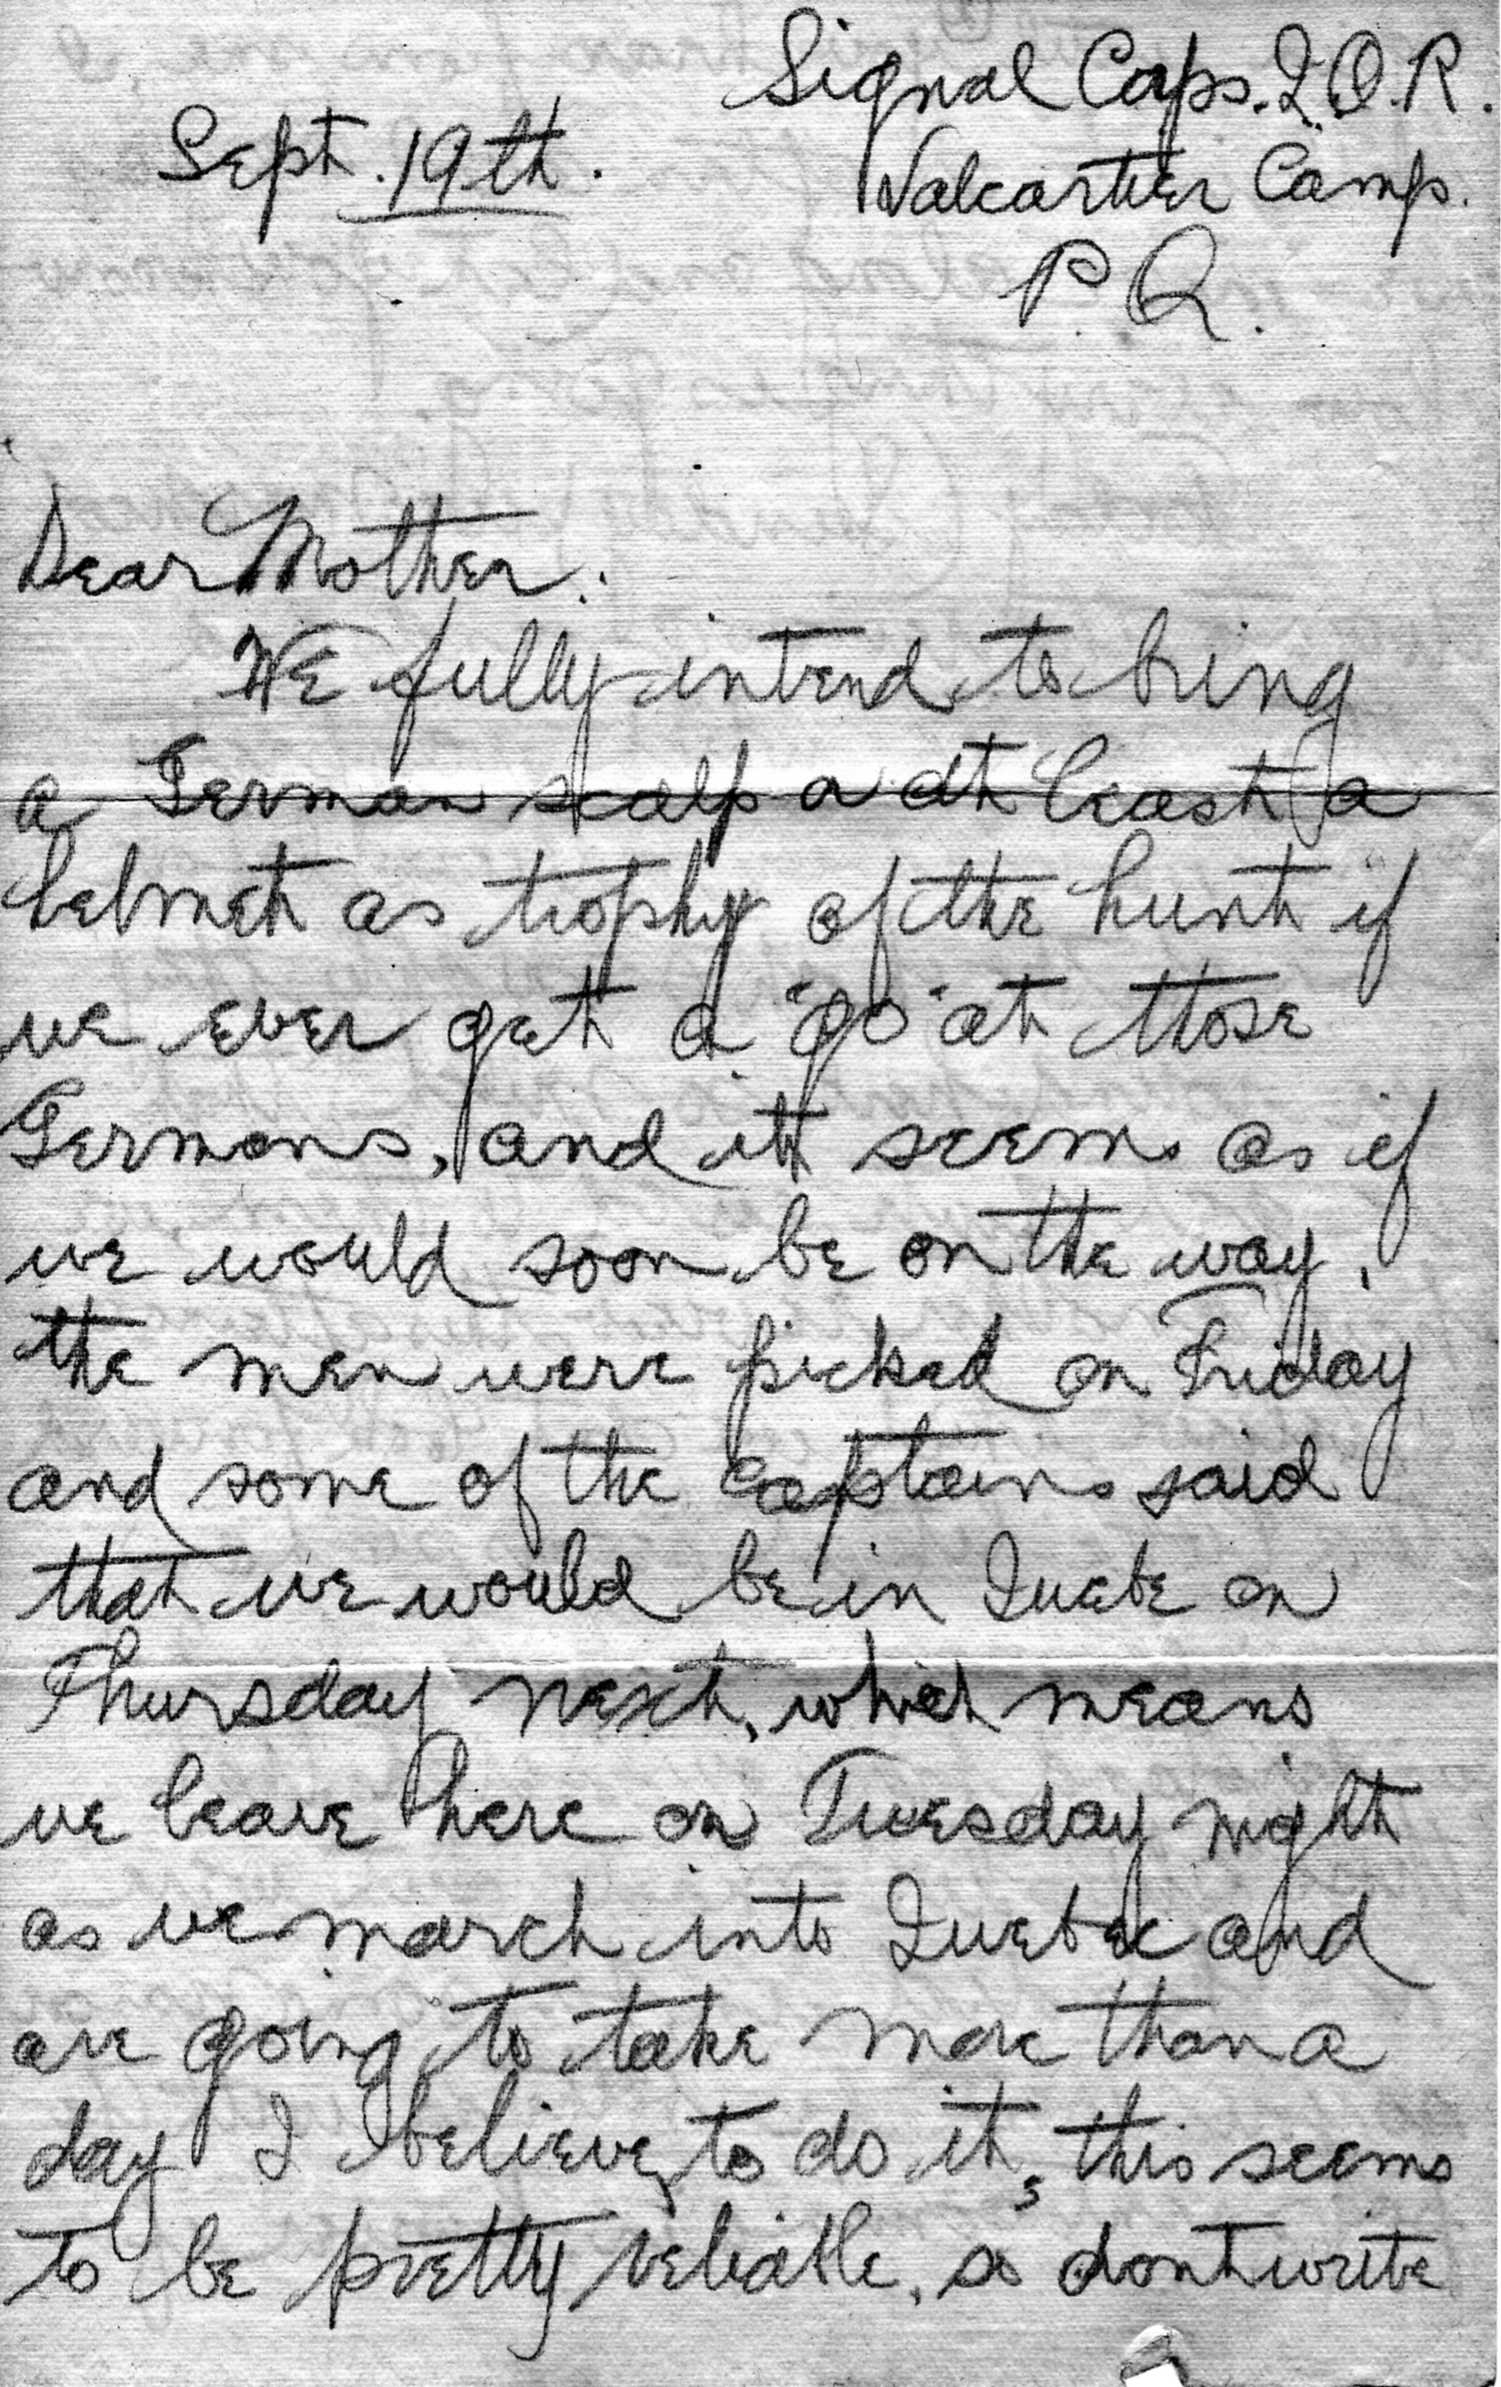 Signal Corps. Q.O.R.
Sept. 19th.
Valcartier Camp.
P.Q.
Dear Mother.
We fully intend to bring
a German scalp or at least a
helmet as trophy of the hunt if
we ever get a "go" at those
Germans, and it seems as if
we would soon be on the way,
the men were picked on Friday
and some of the captains said
that we would be in Quebe on
Thursday next, which means
we leave here on Tuesday night
as we march into Quebec and
are going to take more than a
day I believe, to do it, this seems
to be pretty reliable, so dont write